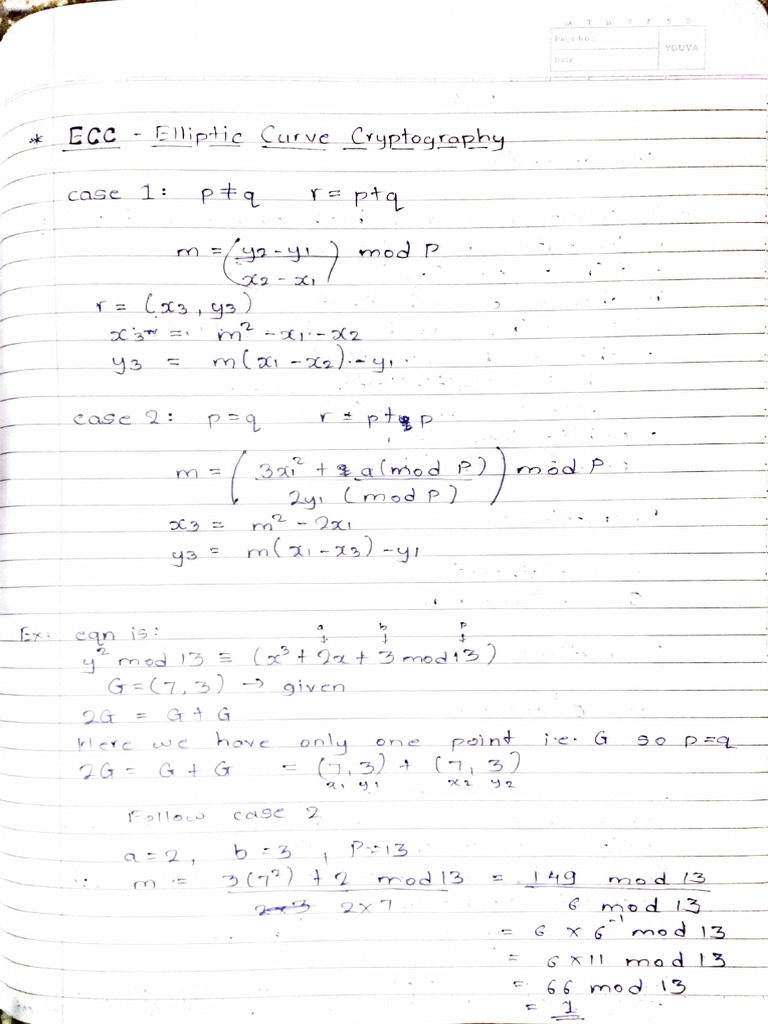 M T W T F S S
Page No.:
Date:
YOUVA
* ECC - Elliptic Curve Cryptography
case 1: p ≠ q r = p+q
m = (y2 - y1 / x2 - x1) mod P
r = (x3, y3)
x3 = m² - x1 - x2
y3 = m(x1 - x2) - y1
case 2: p = q r = p + p
m = (3x1² + a (mod P) / 2y1 (mod P)) mod P
x3 = m² - 2x1
y3 = m(x1 - x3) - y1
a b P
Ex: eqn is:
y² mod 13 ≡ (x³ + 2x + 3 mod 13)
G = (7, 3) → given
2G = G + G
Here we have only one point i.e. G so p=q
2G = G + G = (7, 3) + (7, 3)
x1 y1 x2 y2
Follow case 2
a = 2, b = 3, P = 13
∴ m = 3(7²) + 2 mod 13 / 2×3 2×7 = 149 mod 13 / 6 mod 13
= 6 × 6⁻¹ mod 13
= 6 × 11 mod 13
= 66 mod 13
= 1